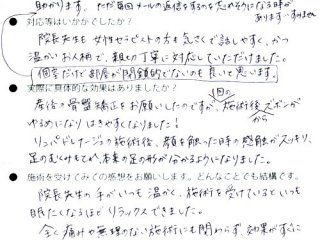 助かります。ただ毎回メールの返信をするのを忘れそうになる時が
あります…すみません
●対応等はいかがでしたか？
院長先生も女性セラピストの方も気さくで話しやすく、かつ
温かいお人柄で、親切丁寧に対応していただけました。
個室だけど部屋が閉鎖的でないのも良いと思います。
●実際に具体的な効果はありましたか？
産後の骨盤矯正をお願いしたのですが、1回の施術後ズボンが
ゆるめになりはきやすくなりました！
リンパドレナージの施術後、顔を触った時の感触がスッキリ、
足のむくみもとれ、本来の足の形が分かるようになりました。
●施術を受けてみての感想をお願いします。どんなことでも結構です。
院長先生の手がいつも温かく、施術を受けているといつも
眠たくなるほどリラックスできました。
全く痛みや無理のない施術にも関わらず、効果がすぐに